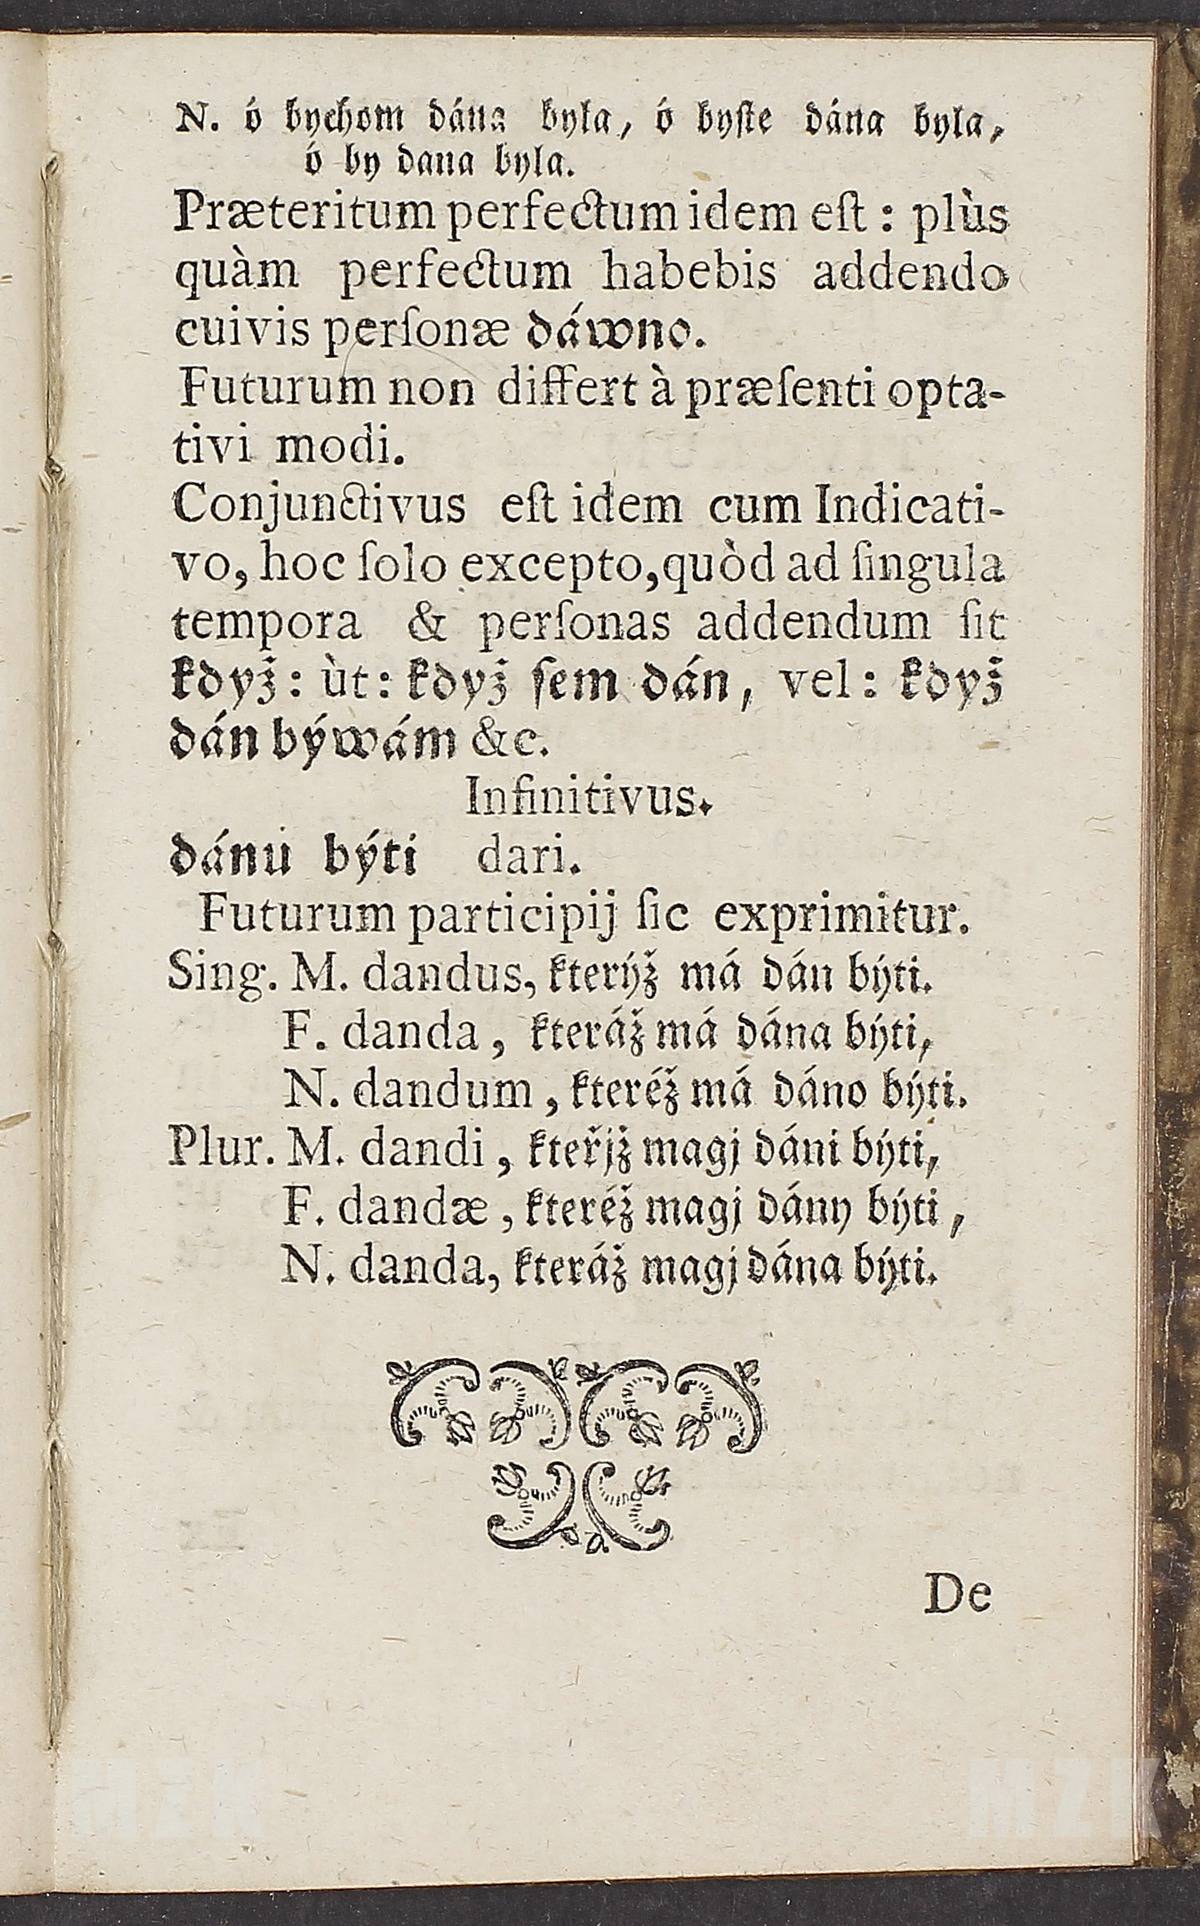 N. ó bychom dána byla, ó byste dána byla,
ó by dana byla.
Præteritum perfectum idem eſt : plùs
quàm perfectum habebis addendo
cuivis perſonæ dáwno.
Futurum non differt à præſenti opta-
tivi modi.
Conjunctivus eſt idem cum Indicati-
vo, hoc ſolo excepto, quòd ad ſingula
tempora & perſonas addendum ſit
když : ùt : když ſem dán, vel : když
dán býwám &c.
Infinitivus.
dánu býti dari.
Futurum participij ſic exprimitur.
Sing. M. dandus, kterýž má dán býti.
F. danda, kteráž má dána býti,
N. dandum, kteréž má dáno býti.
Plur. M. dandi, kteřjž magj dáni býti,
F. dandæ, kteréž magj dány býti,
N. danda, kteráž magj dána býti.
De
MZK MZK